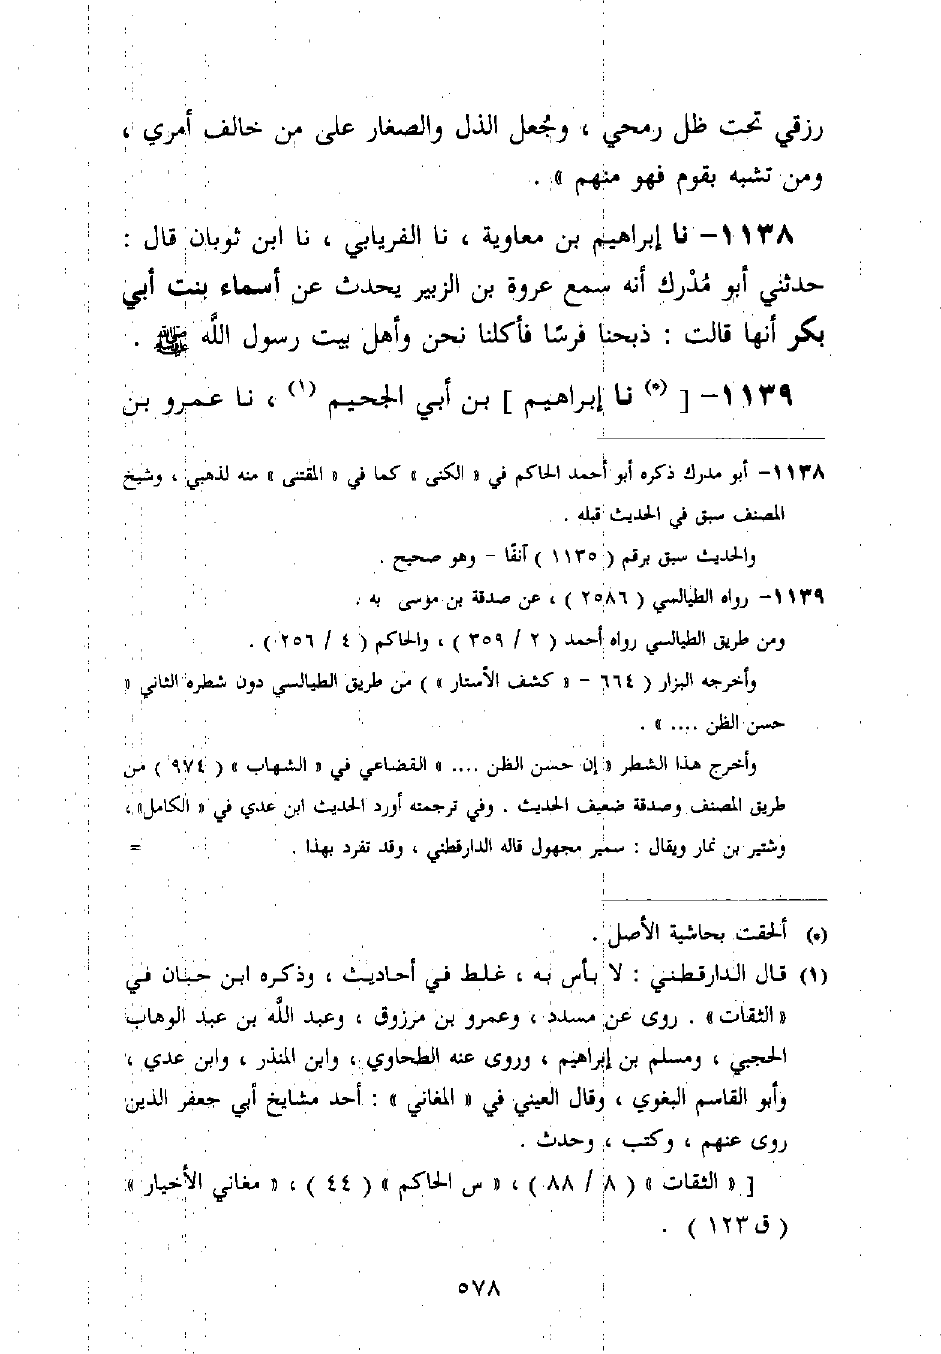 رزقي تحت ظل رمحي ، وجُعل الذل والصغار على من خالف أمري ،
ومن تشبه بقوم فهو منهم » .
١١٣٨- نا إبراهيم بن معاوية ، نا الفريابي ، نا ابن ثوبان قال :
حدثني أبو مُدْرك أنه سمع عروة بن الزبير يحدث عن أسماء بنت أبي
بكر أنها قالت : ذبحنا فرسًا فأكلنا نحن وأهل بيت رسول اللَّه ﷺ .
١١٣٩- [ (*) نا إبراهيم ] بن أبي الجحيم (١) ، نا عمرو بن
١١٣٨- أبو مدرك ذكره أبو أحمد الحاكم في « الكنى » كما في « المقتنى » منه لذهبي ، وشيخ
المصنف سبق في الحديث قبله .
والحديث سبق برقم ( ١١٣٥ ) آنفًا - وهو صحيح .
١١٣٩- رواه الطيالسي ( ٢٥٨٦ ) ، عن صدقة بن موسى به .
ومن طريق الطيالسي رواه أحمد ( ٢ / ٣٥٩ ) ، والحاكم ( ٤ / ٢٥٦ ) .
وأخرجه البزار ( ٦٦٤ - « كشف الأستار » ) من طريق الطيالسي دون شطره الثاني «
حسن الظن .... » .
وأخرج هذا الشطر « إن حسن الظن .... » القضاعي في « الشهاب » ( ٩٧٤ ) من
طريق المصنف وصدقة ضعيف الحديث . وفي ترجمته أورد الحديث ابن عدي في « الكامل» ،
وشتير بن نمار ويقال : سمير مجهول قاله الدارقطني ، وقد تفرد بهذا . =
(*) ألحقت بحاشية الأصل .
(١) قال الدارقطني : لا بأس به ، غلط في أحاديث ، وذكره ابن حبان في
«الثقات» . روى عن مسدد ، وعمرو بن مرزوق ، وعبد اللَّه بن عبد الوهاب
الحجبي ، ومسلم بن إبراهيم ، وروى عنه الطحاوي ، وابن المنذر ، وابن عدي ،
وأبو القاسم البغوي ، وقال العيني في « المغاني » : أحد مشايخ أبي جعفر الذين
روى عنهم ، وكتب ، وحدث .
[ « الثقات » ( ٨ / ٨٨ ) ، « س الحاكم » ( ٤٤ ) ، « مغاني الأخيار »
( ق ١٢٣ ) .
٥٧٨